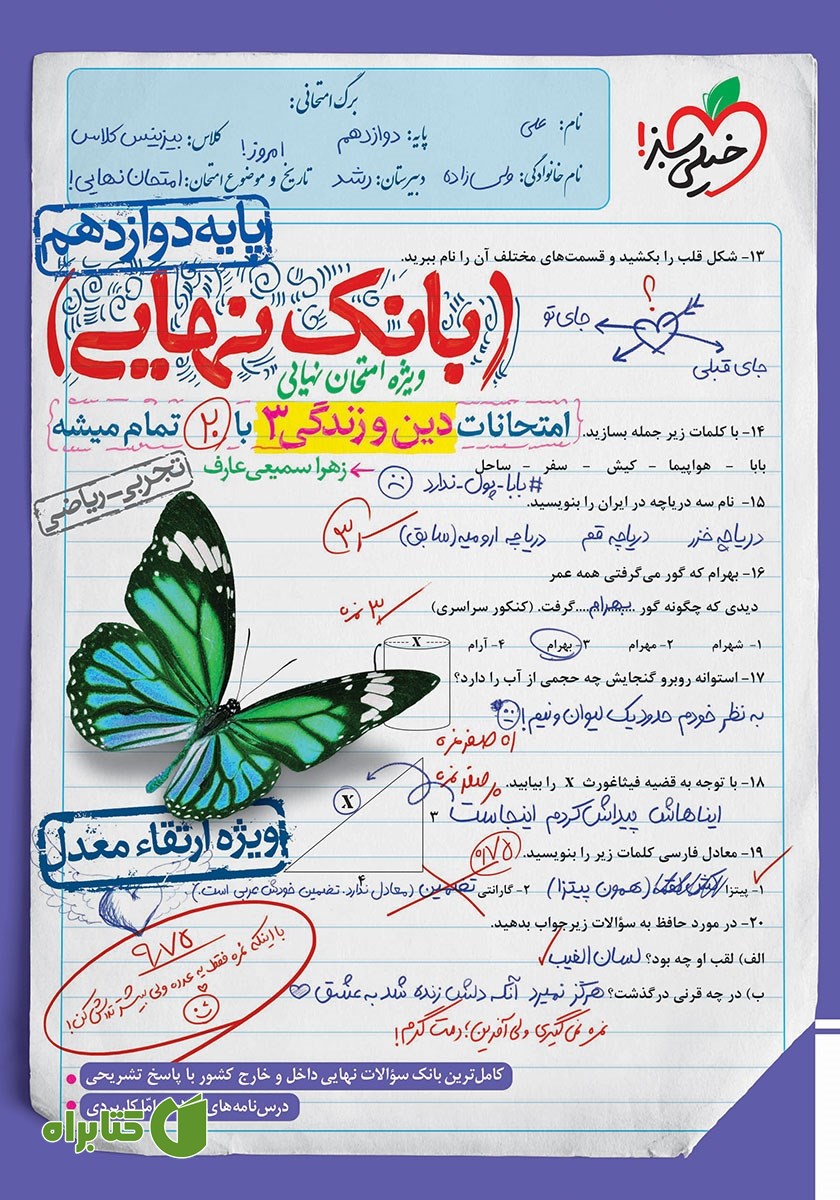 برگ امتحانی:
نام: علی
پایه: دوازدهم
کلاس: بیزینس کلاس
نام خانوادگی: ولی زاده
دبیرستان: رشد
تاریخ و موضوع امتحان: امتحان نهایی!
امروز!
خیلی سبز!
پایه دوازدهم
۱۳- شکل قلب را بکشید و قسمت‌های مختلف آن را نام ببرید.
؟
جای تو
جای قبلی
(بانک نهایی)
ویژه امتحان نهایی
امتحانات دین و زندگی ۳ با ۲۰ تمام میشه
زهرا سمیعی عارف
تجربی-ریاضی
۱۴- با کلمات زیر جمله بسازید.
بابا - هواپیما - کیش - سفر - ساحل
#بابا-پول-ندارد
۱۵- نام سه دریاچه در ایران را بنویسید.
دریاچه خزر دریاچه قم دریاچه ارومیه (سابق)
۱۶- بهرام که گور می‌گرفتی همه عمر
دیدی که چگونه گور ....بهرام.... گرفت. (کنکور سراسری)
۳ نمره
۱- شهرام ۲- مهرام ۳- بهرام ۴- آرام
X
۱۷- استوانه روبرو گنجایش چه حجمی از آب را دارد؟
به نظر خودم حدود یک لیوان و نیم!
۵ صفر نمره
۱۸- با توجه به قضیه فیثاغورث X را بیابید.
صفر نمره
ایناهاش پیداش کردم اینجاست
X
۳
۴
ویژه ارتقاء معدل
۱۹- معادل فارسی کلمات زیر را بنویسید.
۰/۷۵
۱- پیتزا (همون پیتزا) ۲- گارانتی تضمین (معادل ندارد. تضمین خودش عربی است.)
۲۰- در مورد حافظ به سؤالات زیر جواب بدهید.
الف) لقب او چه بود؟ لسان الغیب
ب) در چه قرنی درگذشت؟ هرگز نمیرد آنکه دلش زنده شد به عشق
نمره نمی‌گیری ولی آفرین! دمت گرم!
۹/۷۵
با اینکه نمره فقط یه عدده ولی بیشتر تلاش کن!
کامل‌ترین بانک سؤالات نهایی داخل و خارج کشور با پاسخ تشریحی
درس‌نامه‌های امّا کاربردی
کتابراه